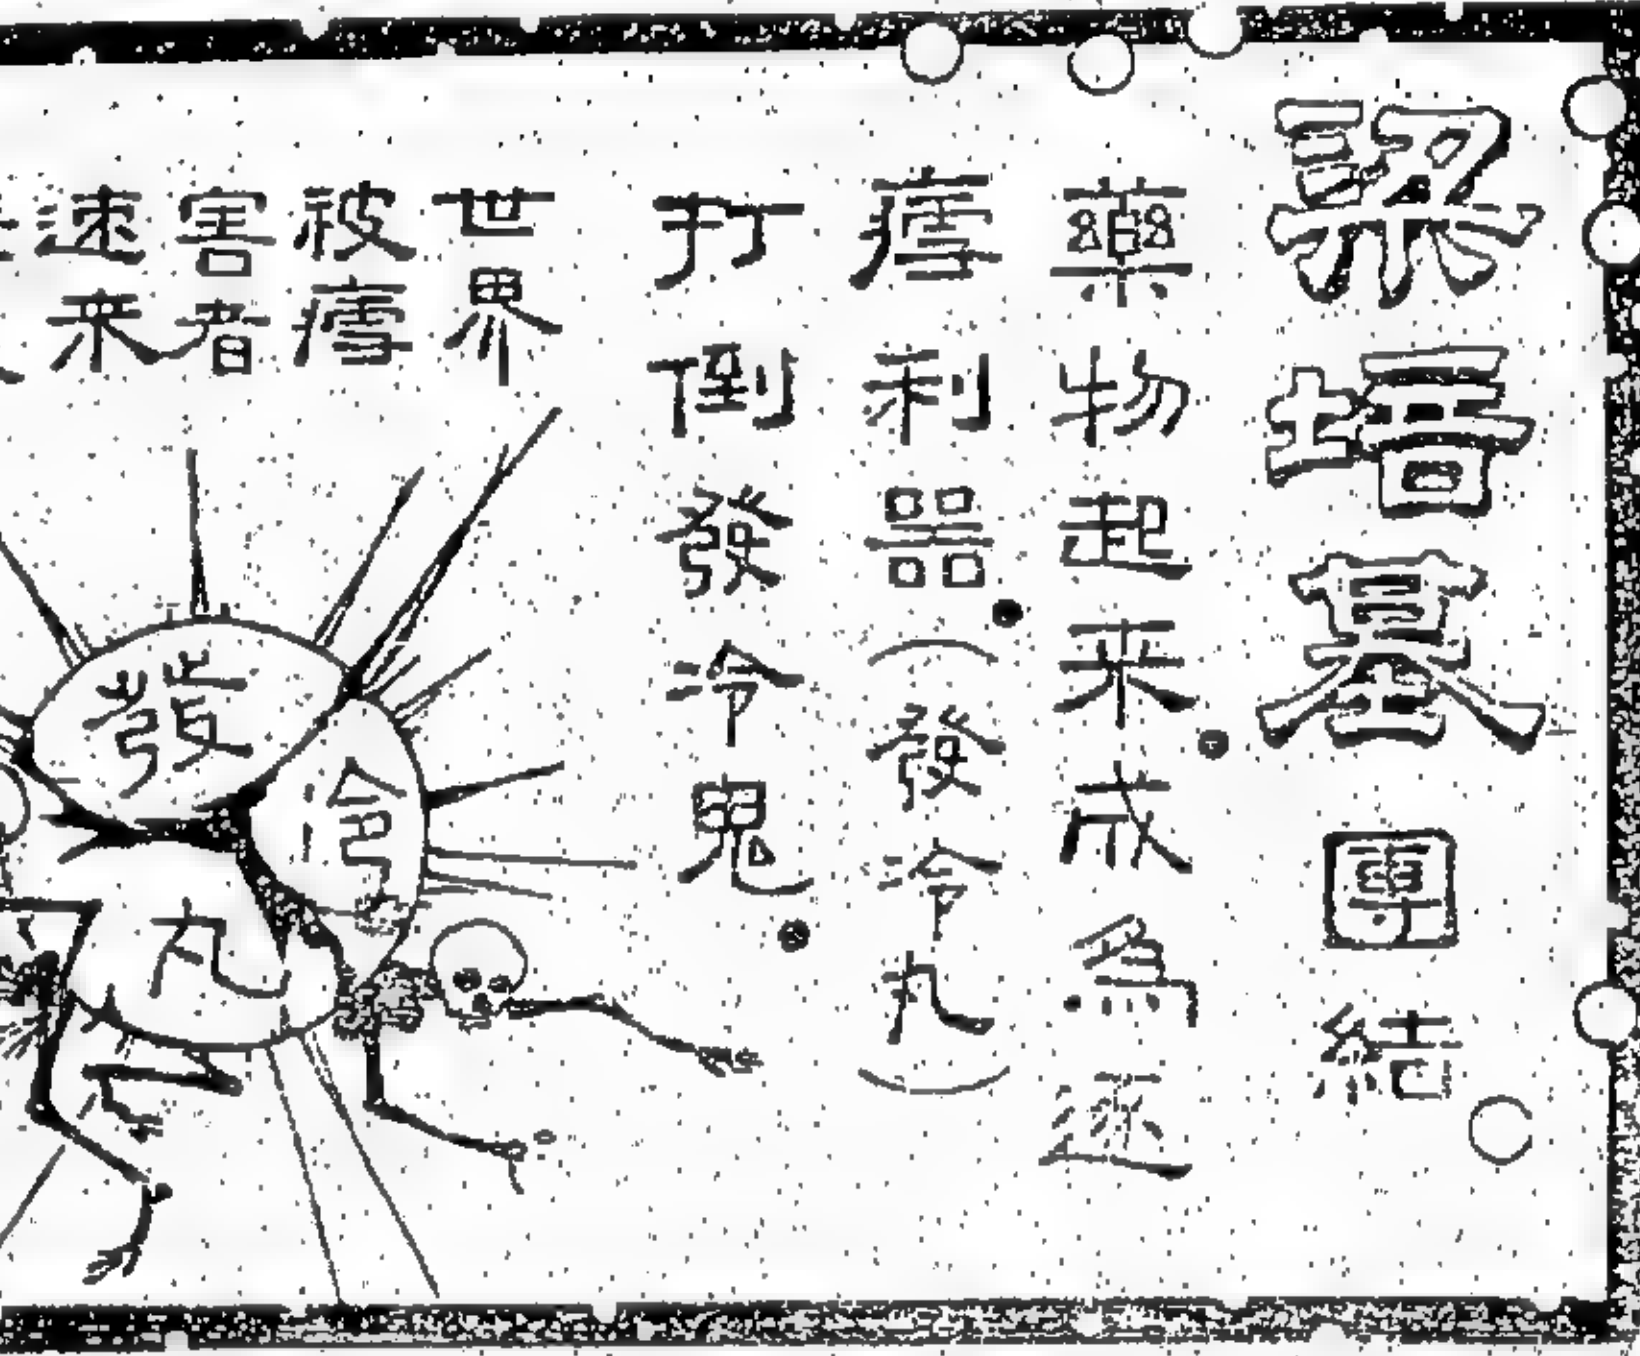 梁培基團結
藥物起来。成為逐
瘧利器。（發冷丸）
打倒發冷鬼。
世界
被瘧
害者
速来
發
冷
丸